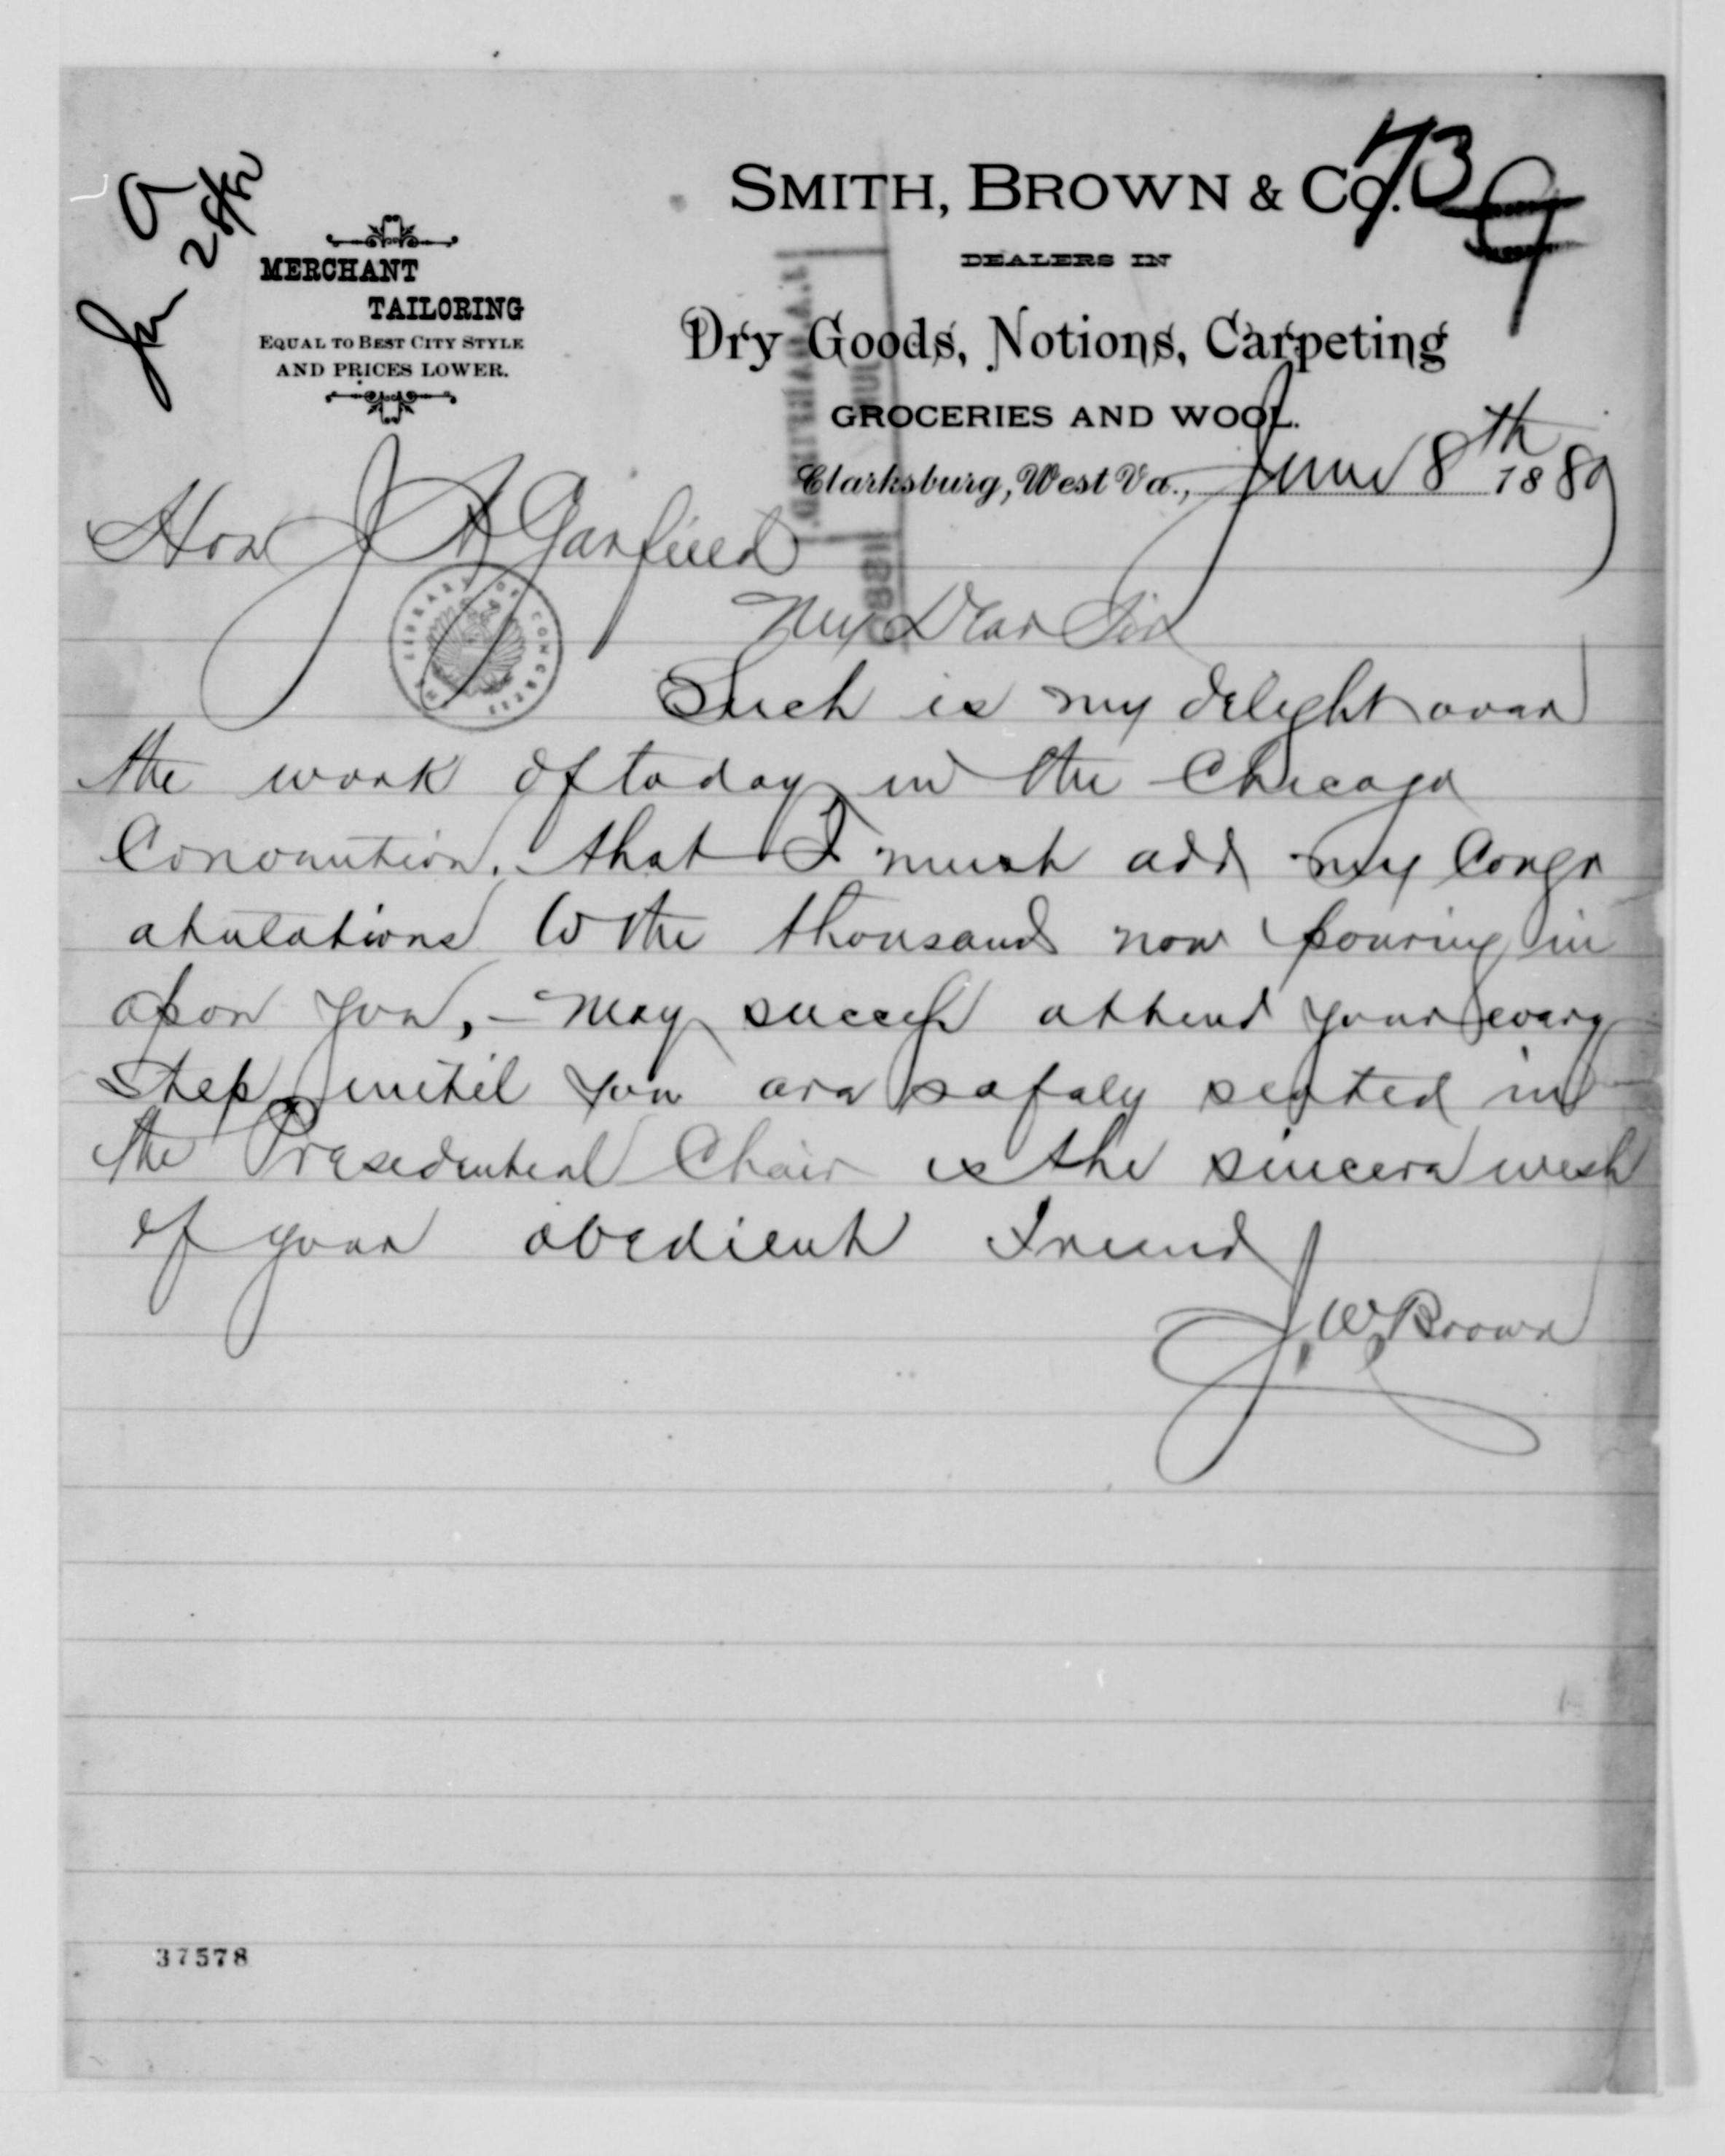 A
Ju 28/80
73
MERCHANT
TAILORING
EQUAL TO BEST CITY STYLE
AND PRICES LOWER.
SMITH, BROWN & CO.
DEALERS IN
Dry Goods, Notions, Carpeting
GROCERIES AND WOOL.
Clarksburg, West Va., June 8th 1880
Hon J A Garfield
My Dear Sir
Such is my delight over
the work of today in the Chicago
Convention, that I must add my Congr
atulations to the thousands now pouring in
upon you, - May success attend your every
step, until you are safely seated in
the Presidential Chair is the sincere wish
of your obedient Friend
J. W. Brown
LIBRARY OF CONGRESS
37578